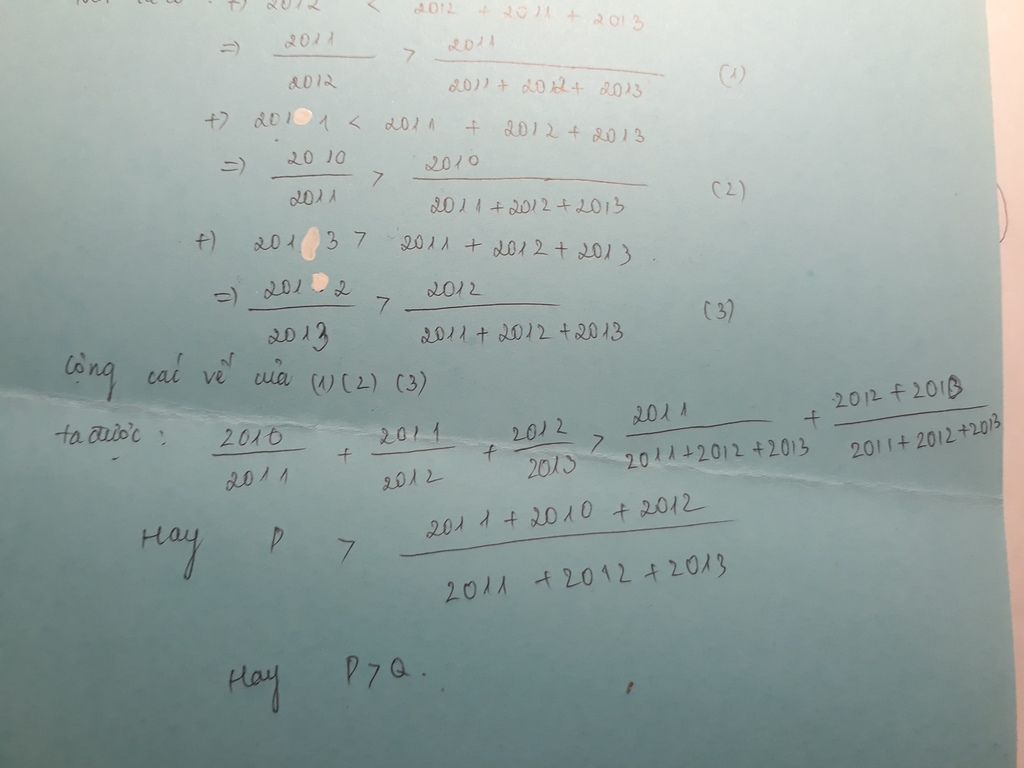 +) 2012 < 2012 + 2011 + 2013
=) 2011/2012 > 2011/2011 + 2012 + 2013 (1)
+) 201 1 < 2011 + 2012 + 2013
=) 2010/2011 > 2010/2011 + 2012 + 2013 (2)
+) 201 3 > 2011 + 2012 + 2013
=) 201 2/2013 > 2012/2011 + 2012 + 2013 (3)
Cộng các vế của (1) (2) (3)
ta được : 2010/2011 + 2011/2012 + 2012/2013 > 2011/2011 + 2012 + 2013 + 2012 + 2013/2011 + 2012 + 2013
Hay P > 2011 + 2010 + 2012/2011 + 2012 + 2013
Hay P > Q .